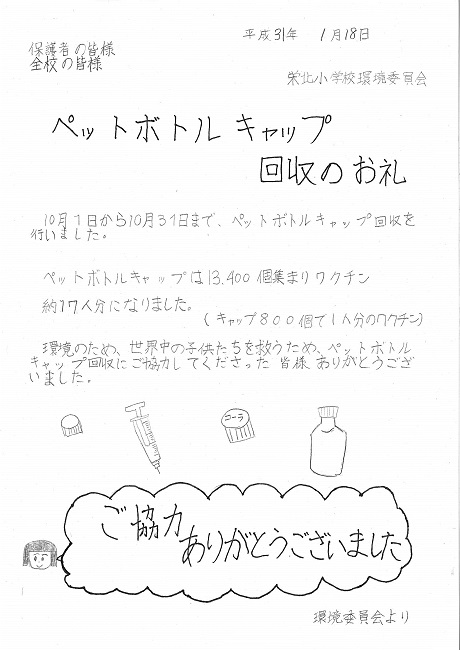 平成31年 1月18日
保護者の皆様
全校の皆様
栄北小学校環境委員会
ペットボトルキャップ
回収のお礼
10月1日から10月31日まで、ペットボトルキャップ回収を
行いました。
ペットボトルキャップは13.400個集まりワクチン
約17人分になりました。
(キャップ800個で1人分のワクチン)
環境のため、世界中の子供たちを救うため、ペットボトル
キャップ回収にご協力してくださった皆様、ありがとうござ
いました。
コーラ
ご協力
ありがとうございました
環境委員会より